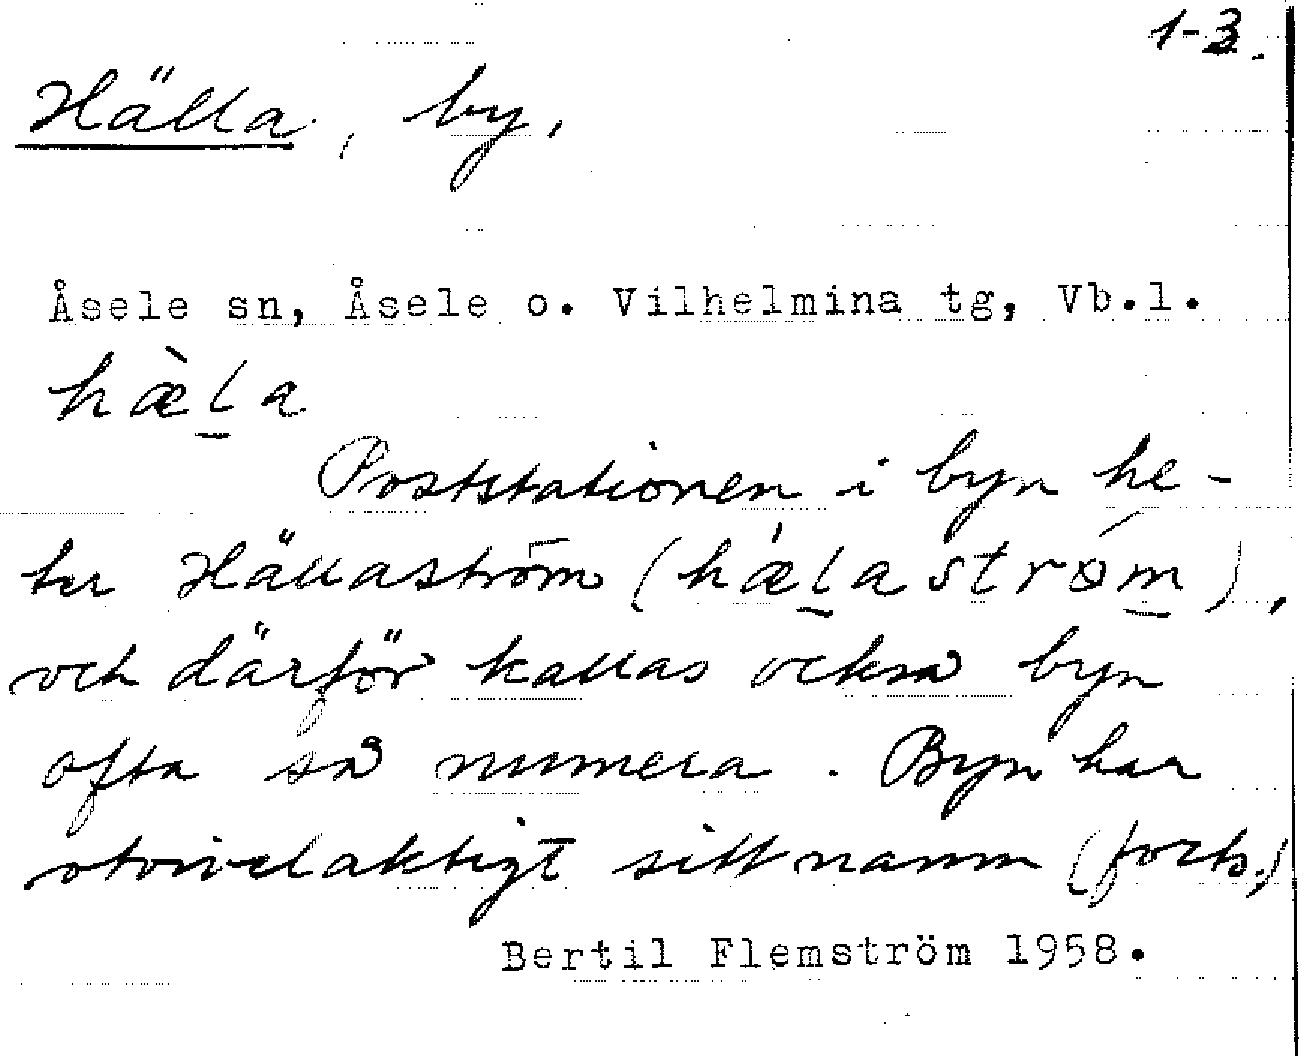 1-3.
Hälla, by,
Åsele sn, Åsele o. Vilhelmina tg, Vb.l.
hæ̀l̲a
Poststationen i byn he-
ter Hällaström (hæ̀l̲aström̲),
och därför kallas också byn
ofta så numera. Byn har
otvivelaktigt sitt namn (forts.)
Bertil Flemström 1958.